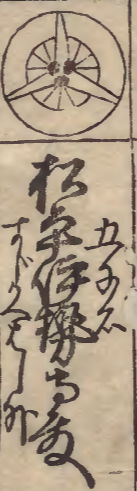 五千石
松平伊勢守殿
すじかへはし外